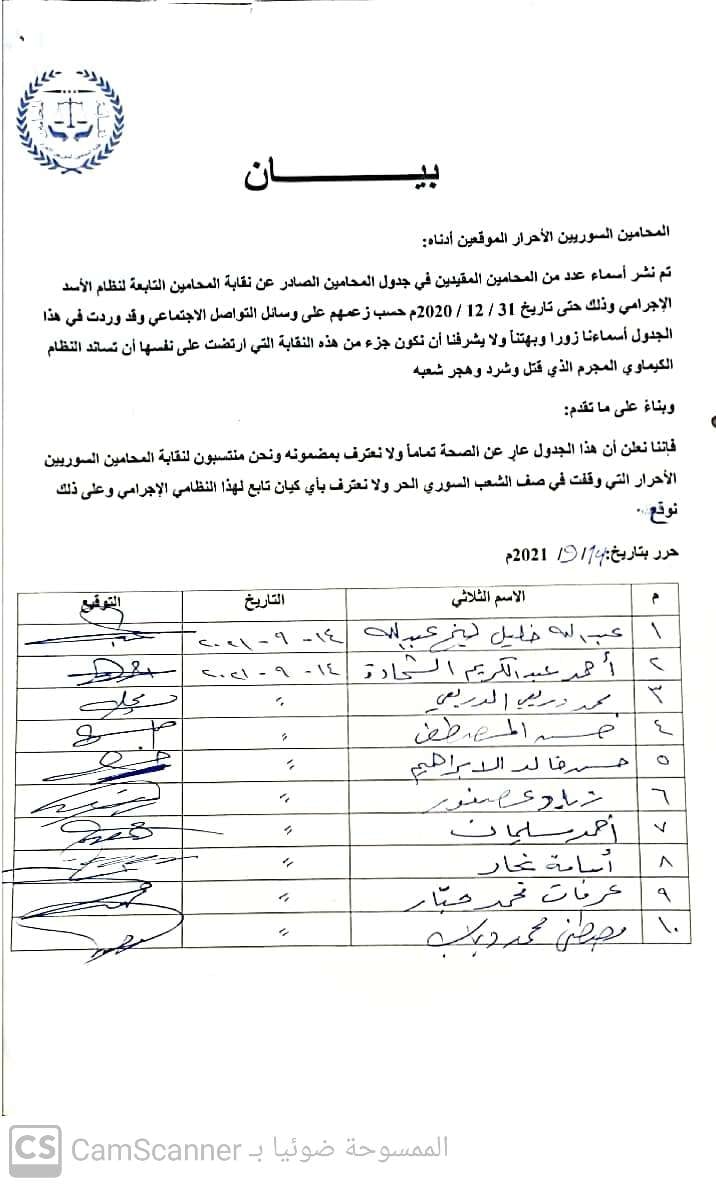 بيـــــــــان
المحامين السوريين الأحرار الموقعين أدناه:
تم نشر أسماء عدد من المحامين المقيدين في جدول المحامين الصادر عن نقابة المحامين التابعة لنظام الأسد
الإجرامي وذلك حتى تاريخ 31 / 12 / 2020م حسب زعمهم على وسائل التواصل الاجتماعي وقد وردت في هذا
الجدول أسماءنا زورا وبهتناً ولا يشرفنا أن نكون جزء من هذه النقابة التي ارتضت على نفسها أن تساند النظام
الكيماوي المجرم الذي قتل وشرد وهجر شعبه
وبناءً على ما تقدم:
فإننا نعلن أن هذا الجدول عارٍ عن الصحة تماماً ولا نعترف بمضمونه ونحن منتسبون لنقابة المحامين السوريين
الأحرار التي وقفت في صف الشعب السوري الحر ولا نعترف بأي كيان تابع لهذا النظامي الإجرامي وعلى ذلك
نوقع.
حرر بتاريخ: 14 / 9 / 2021م
م الاسم الثلاثي التاريخ التوقيع
١ عبد الله خليل شيخ عبد الله ١٤ - ٩ - ٢٠٢١
٢ أحمد عبد الكريم الشحادة ١٤ - ٩ - ٢٠٢١
٣ محمد
٤ حسن المصطفى "
٥ حسن خالد الابراهيم "
٦ زياد "
٧ أحمد سليمان "
٨ أسامة نجار "
٩ عرفات محمد "
١٠ مصطفى محمد دياب "
CS CamScanner الممسوحة ضوئيا بـ